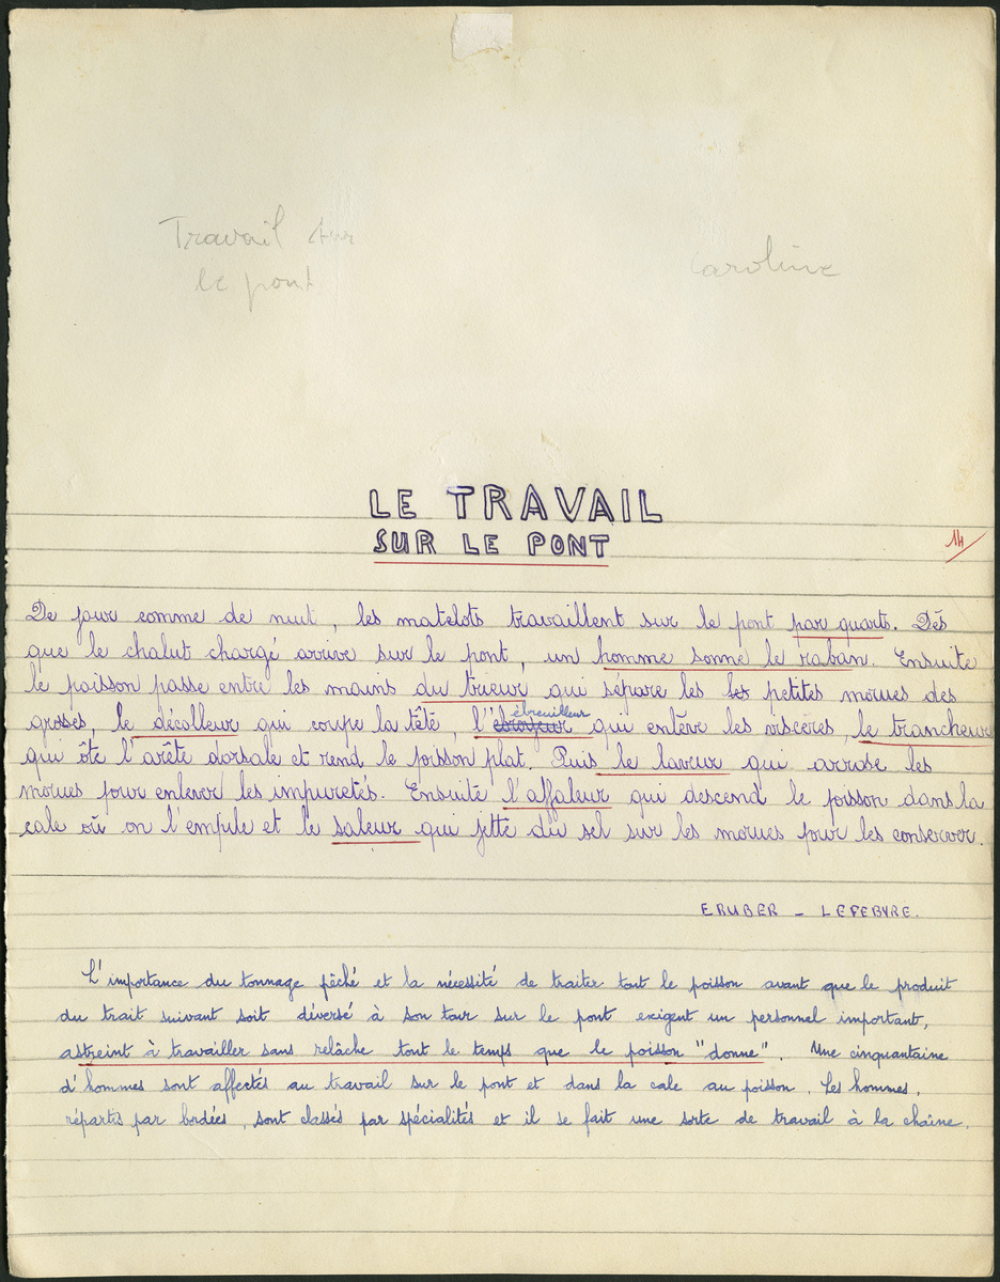 Travail sur
le pont
Caroline
LE TRAVAIL
SUR LE PONT
14
De jour comme de nuit, les matelots travaillent sur le pont par quarts. Dès
que le chalut chargé arrive sur le pont, un homme sonne le raban. Ensuite
le poisson passe entre les mains du trieur qui sépare les les petites morues des
grosses, le décolleur qui coupe la tête, l'ébreuilleur qui enlève les viscères, le trancheur
qui ôte l'arête dorsale et rend le poisson plat. Puis le laveur qui arrose les
morues pour enlever les impuretés. Ensuite l'affaleur qui descend le poisson dans la
cale où on l'empile et le saleur qui jette du sel sur les morues pour les conserver.
ERUBER - LEFEBVRE.
L'importance du tonnage pêché et la nécessité de traiter tout le poisson avant que le produit
du trait suivant soit déversé à son tour sur le pont exigent un personnel important,
astreint à travailler sans relâche tout le temps que le poisson "donne". Une cinquantaine
d'hommes sont affectés au travail sur le pont et dans la cale au poisson. Les hommes,
répartis par bordées, sont classés par spécialités et il se fait une sorte de travail à la chaîne.